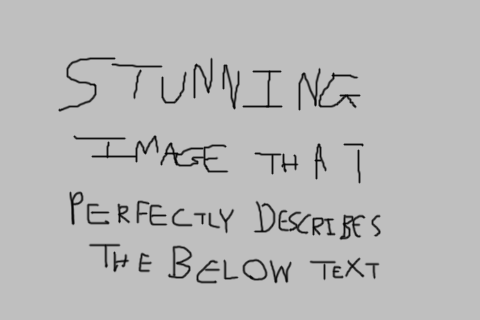 STUNNING
IMAGE THAT
PERFECTLY DESCRIBES
THE BELOW TEXT